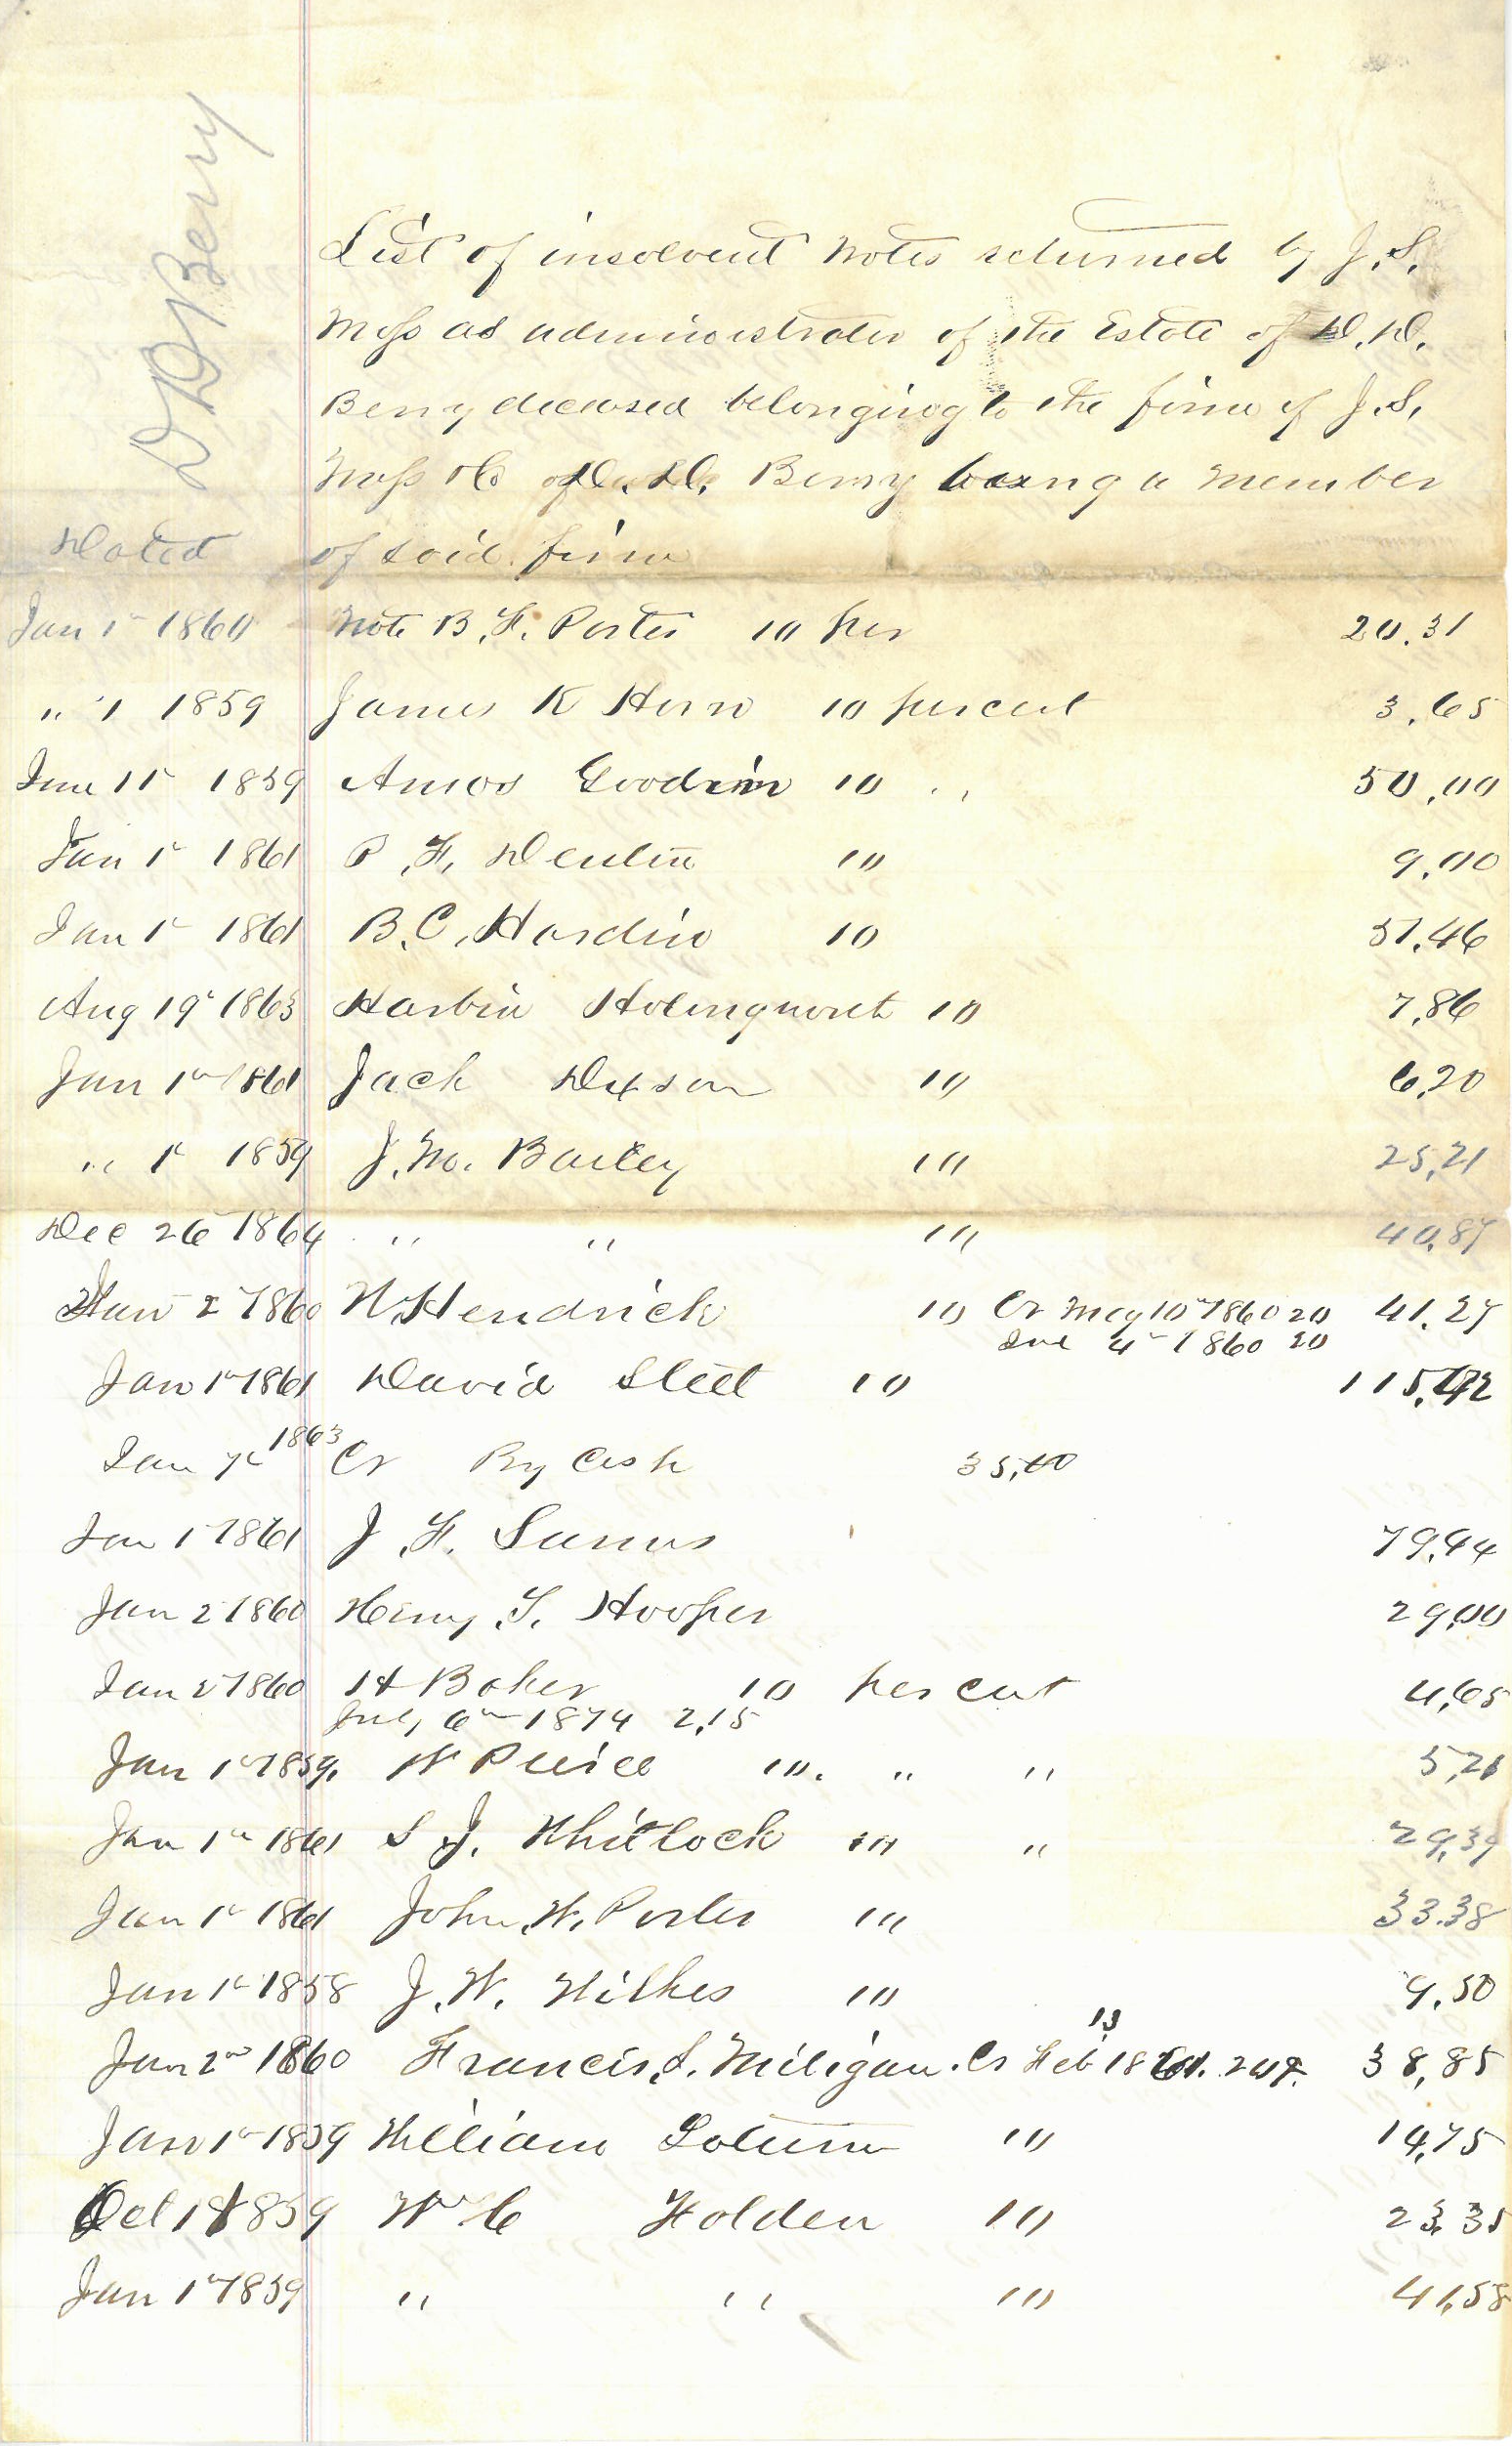 D D Berry
List of insolvent Notes returned by J. S.
Moss as administrator of the Estate of D. D.
Berry deceased belonging to the firm of J. S.
Moss & Co of D. D. Berry being a member
Dated of said firm
Jan 1st 1860 Note B. F. Porter 10 per 20.31
" 1 1859 James K Horn 10 percent 3.65
Jan 1st 1859 Amos Goodwin 10 " 50.00
Jan 1st 1861 P. F. 10 9.00
Jan 1st 1861 B. C. Hardin 10 37.46
Aug 19th 1863 Harbin Holingworth 10 7.86
Jan 1st 1861 Jack Dixson 10 6.20
" 1st 1859 J. M. Bailey 10 25.21
Dec 26th 1864 " " 10 40.87
Jan 2nd 1860 W Hendrick 10 Cr May 10th 1860 20 41.27
4th 1860 20
Jan 1st 1861 David Sleet 10 115.42
Jan 7th 1863 Cr By Cash 35.00
Jan 1st 1861 J. F. 79.44
Jan 2 1860 Henry T. Hooper 29.00
Jan 2nd 1860 H Baker 10 per cent 4.65
July 6th 1874 2.15
Jan 1st 1859. W Peirce 10. " " 5.21
Jan 1st 1861 S J. Whitlock 10 " 29.39
Jan 1st 1861 John W. Porter 10 33.38
Jan 1st 1858 J. W. Wilkes 10 9.50
Jan 2nd 1860 Francis S. Miligan. Cr Feb 13 1861. 38.85
Jan 1st 1859 William 10 14.75
Oct 1st 1859 Wm C Holden 10 23.35
Jan 1st 1859 " " 10 41.58